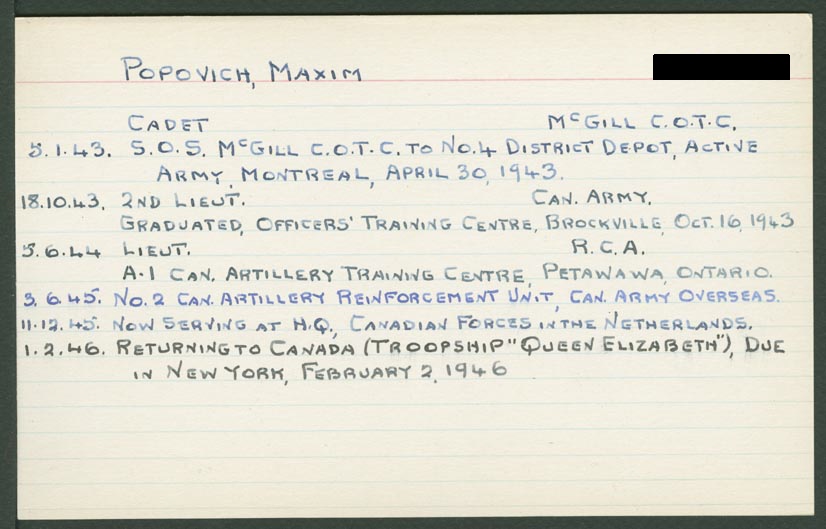 POPOVICH, MAXIM
CADET McGILL C.O.T.C.
5.1.43. S.O.S. McGILL C.O.T.C. TO No.4 DISTRICT DEPOT, ACTIVE
ARMY, MONTREAL, APRIL 30, 1943.
18.10.43. 2ND LIEUT. CAN. ARMY.
GRADUATED, OFFICERS' TRAINING CENTRE, BROCKVILLE, OCT. 16, 1943
5.6.44 LIEUT. R.C.A.
A-1 CAN. ARTILLERY TRAINING CENTRE, PETAWAWA, ONTARIO.
3.6.45. No. 2 CAN. ARTILLERY REINFORCEMENT UNIT, CAN. ARMY OVERSEAS.
11.12.45. NOW SERVING AT H.Q., CANADIAN FORCES IN THE NETHERLANDS.
1.2.46. RETURNING TO CANADA (TROOPSHIP "QUEEN ELIZABETH"), DUE
IN NEW YORK, FEBRUARY 2, 1946